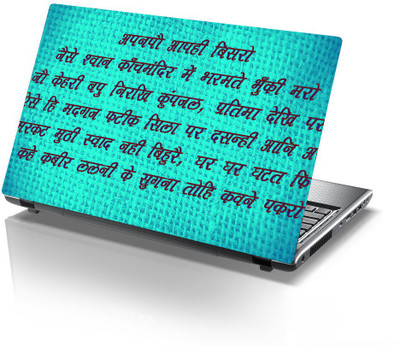 अपनपौ आपही बिसरो
जैसे श्वान काँचमंदिर में भरमते भुँकी मरो
जौ केहरी बपु निरखि कूंपजल, प्रतिमा देखि पर
ऐसे हि मदगज फटीक सिला पर दसन्ही आनि अ
मरकट मुठी स्वाद नही बिहुरै, घर घर घटत फि
कहे कबीर ललनी के सुगना तोहि कवने पकरो